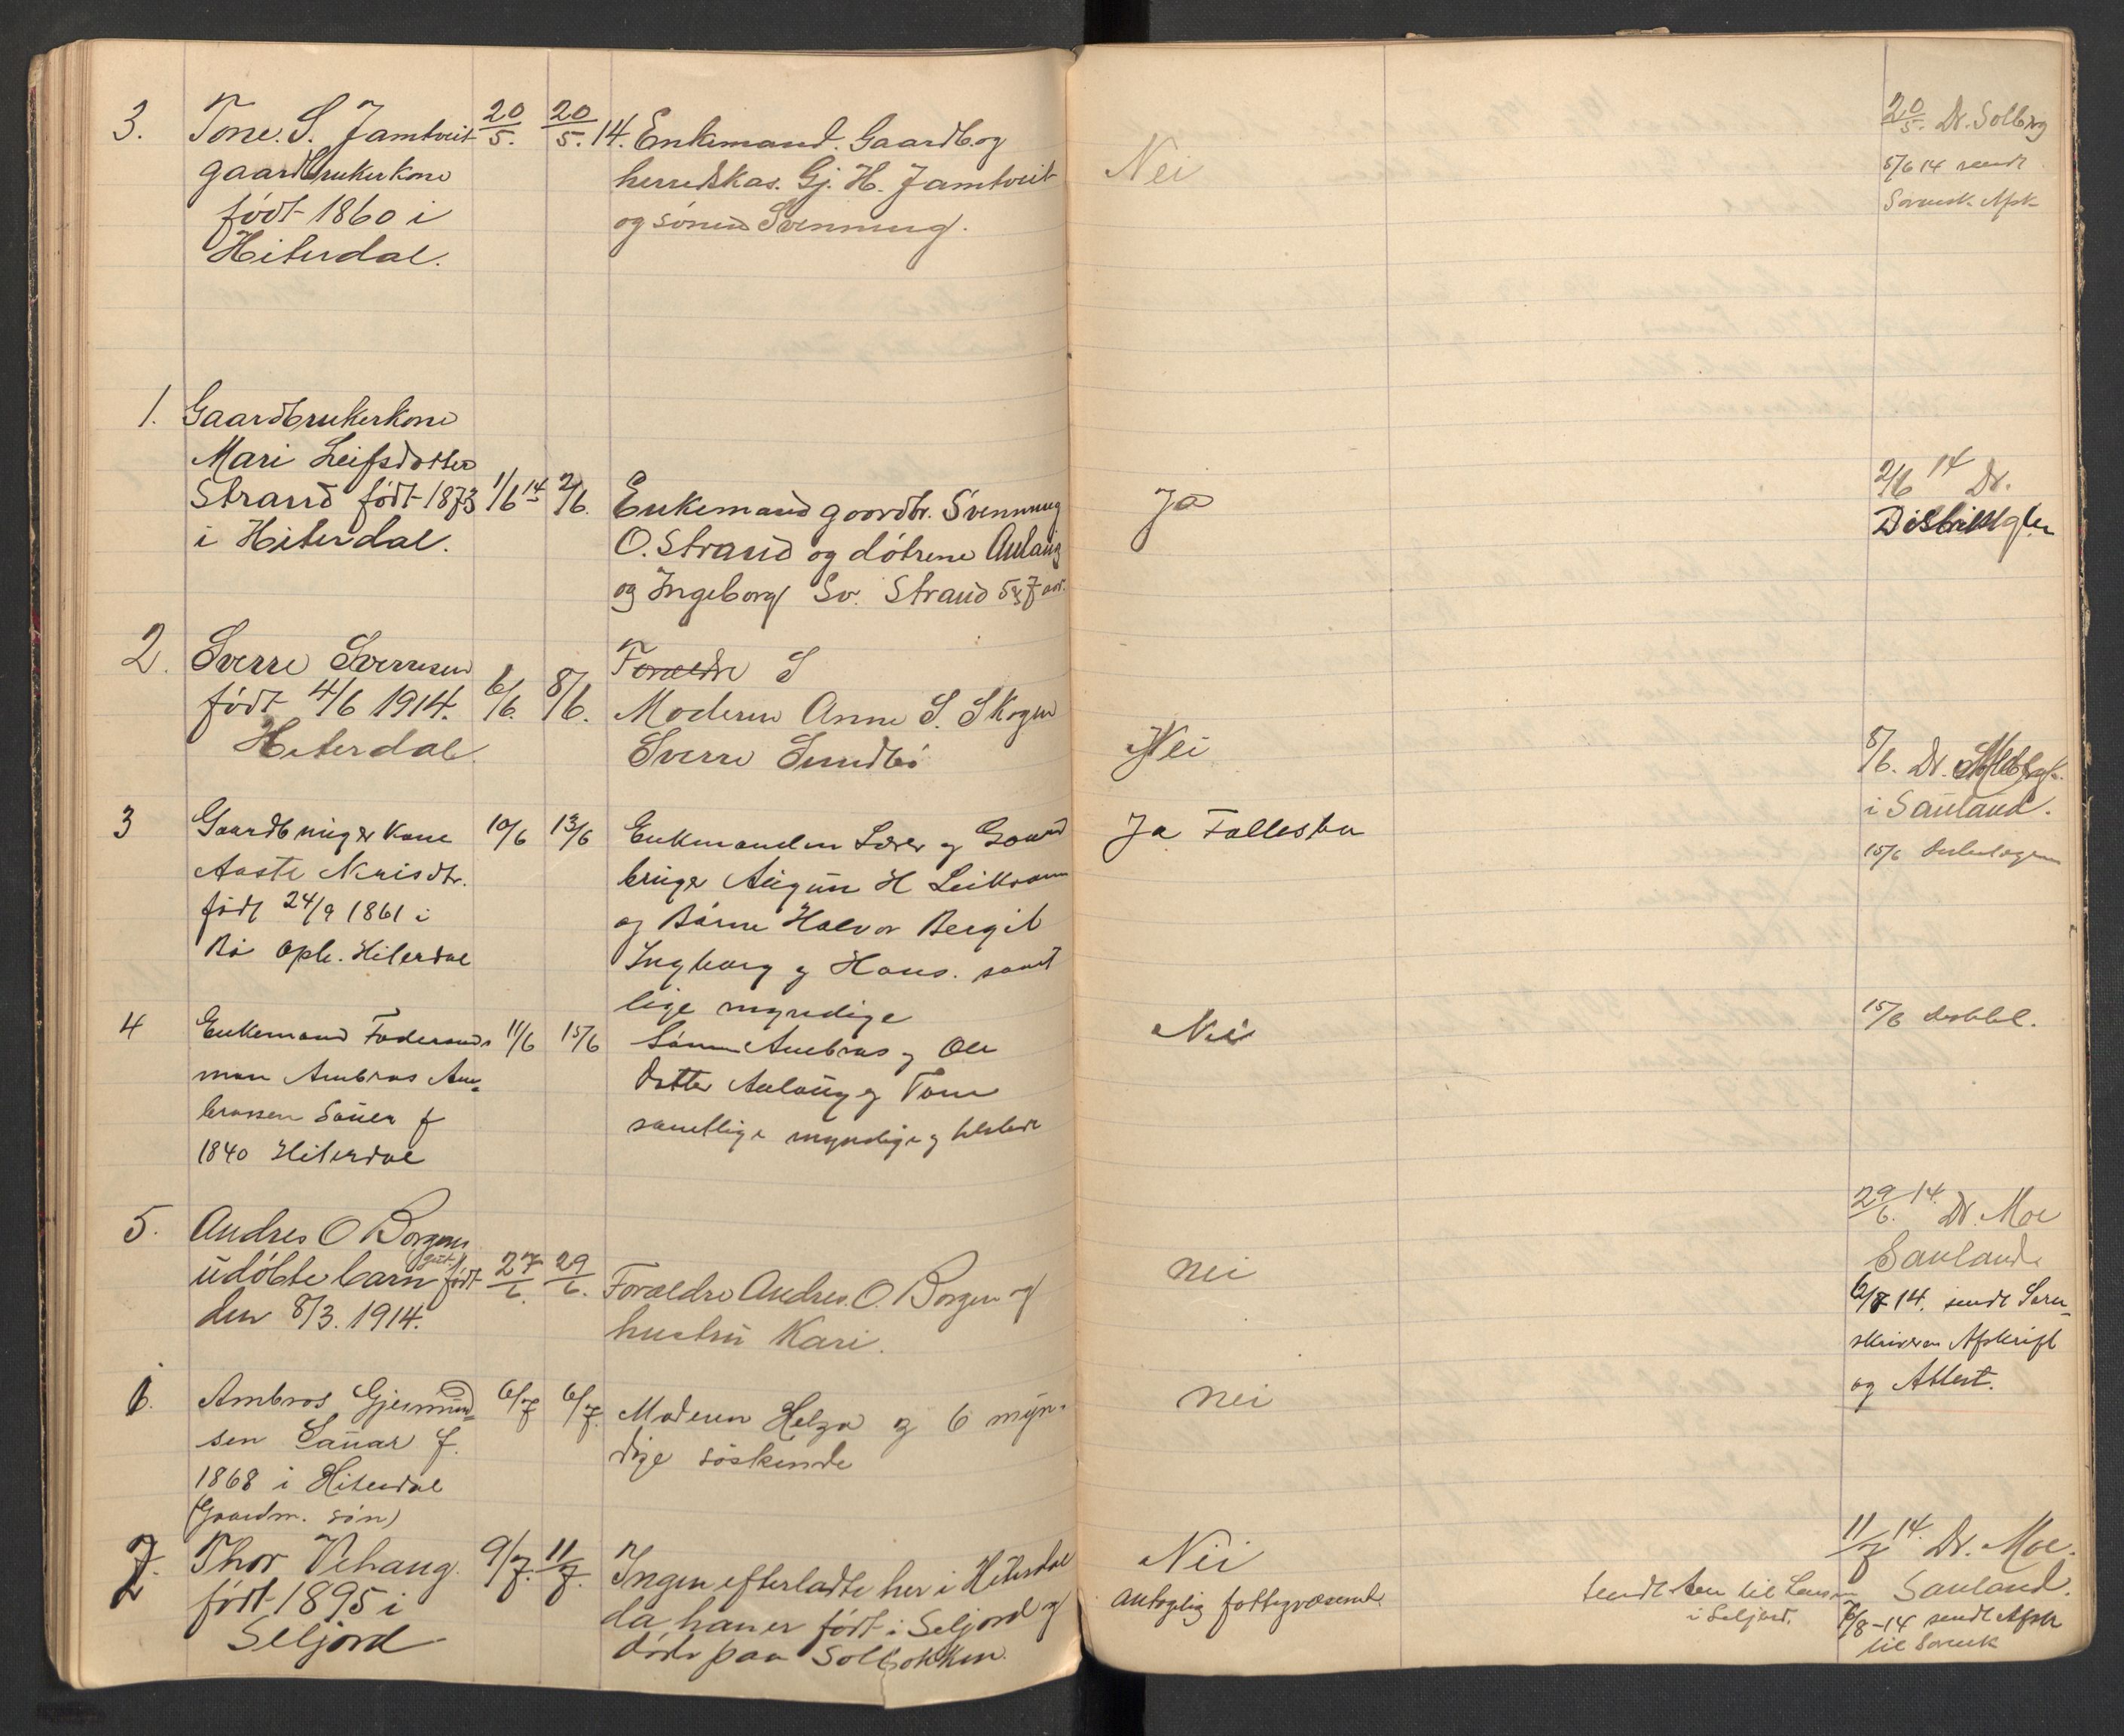 3. Tone. S. Jamtveit 20/5. 20/5. 14. Enkemand. Gaardb. og
gaardbrukerkone herredskas. Gj. H. Jamtveit
født 1860 i og sønnen Svenning.
Hiterdal.
Nei
20/5. Dr. Solberg
5/6 14 sendt
Sorensk. Afsk
1. Gaardbrukerkone
Mari Leifsdotter
Strand født 1873 1/6 14 2/6. Enkemand gaardbr. Svenning
i Hiterdal. O. Strand og døtrene Aulaug
og Ingeborg Sv. Strand 5 og 7 aar.
Ja
2/6 14 Dr.
2. Sverre Sverresen Forældre S
født 4/6 1914. 6/6. 8/6. Moderen Anne S. Skogen
Hiterdal. Sverre Sundbø
Nei
8/6. Dr.
i Sauland.
3 Gaardbruger kone 10/6 13/6 Enkemanden Lærer og Gaard
Aaste Nerisdtr. bruger Augun H Leikvam
født 24/9 1861 i og Børne Halvor Bergit
Bø oph. Hiterdal Ingborg og Hans. samt
lige myndige
Ja Fællesbo
15/6
4 Enkemand Føderaads 11/6 15/6 Sønner Ambros og Ole
man Ambros Am- Døtter Aulaug og Tone
brossen Sauer f samtlige myndige og tilstede
1840 Hiterdal
Nei
15/6
5. Andres O Borgens
udøbte barn (gut) født 27/6. 29/6. Forældre Andres. O. Borgen og
den 8/3. 1914. hustru Kari.
nei
29/6. 14. Dr. Moe
Sauland.
6/7 14. sendt Soren-
skriveren Afskrift
og Attest.
6. Ambros Gjermund- 6/7 6/7. Moderen Helga og 6 myn-
sen Sauar f. dige søskende
1868 i Hiterdal
(Gaardm. søn)
nei
7. Thor Vehaug. 9/7. 11/7. Ingen efterladte her i Hiterdal
født 1895 i da han er født i Seljord og
Seljord døde paa Solbakken.
Nei
Antagelig fattigvæsenet.
sendt den til Lensm
i Seljord.
11/7 14. Dr. Moe.
Sauland.
6/8-14 sendt Afskr
til Sorensk